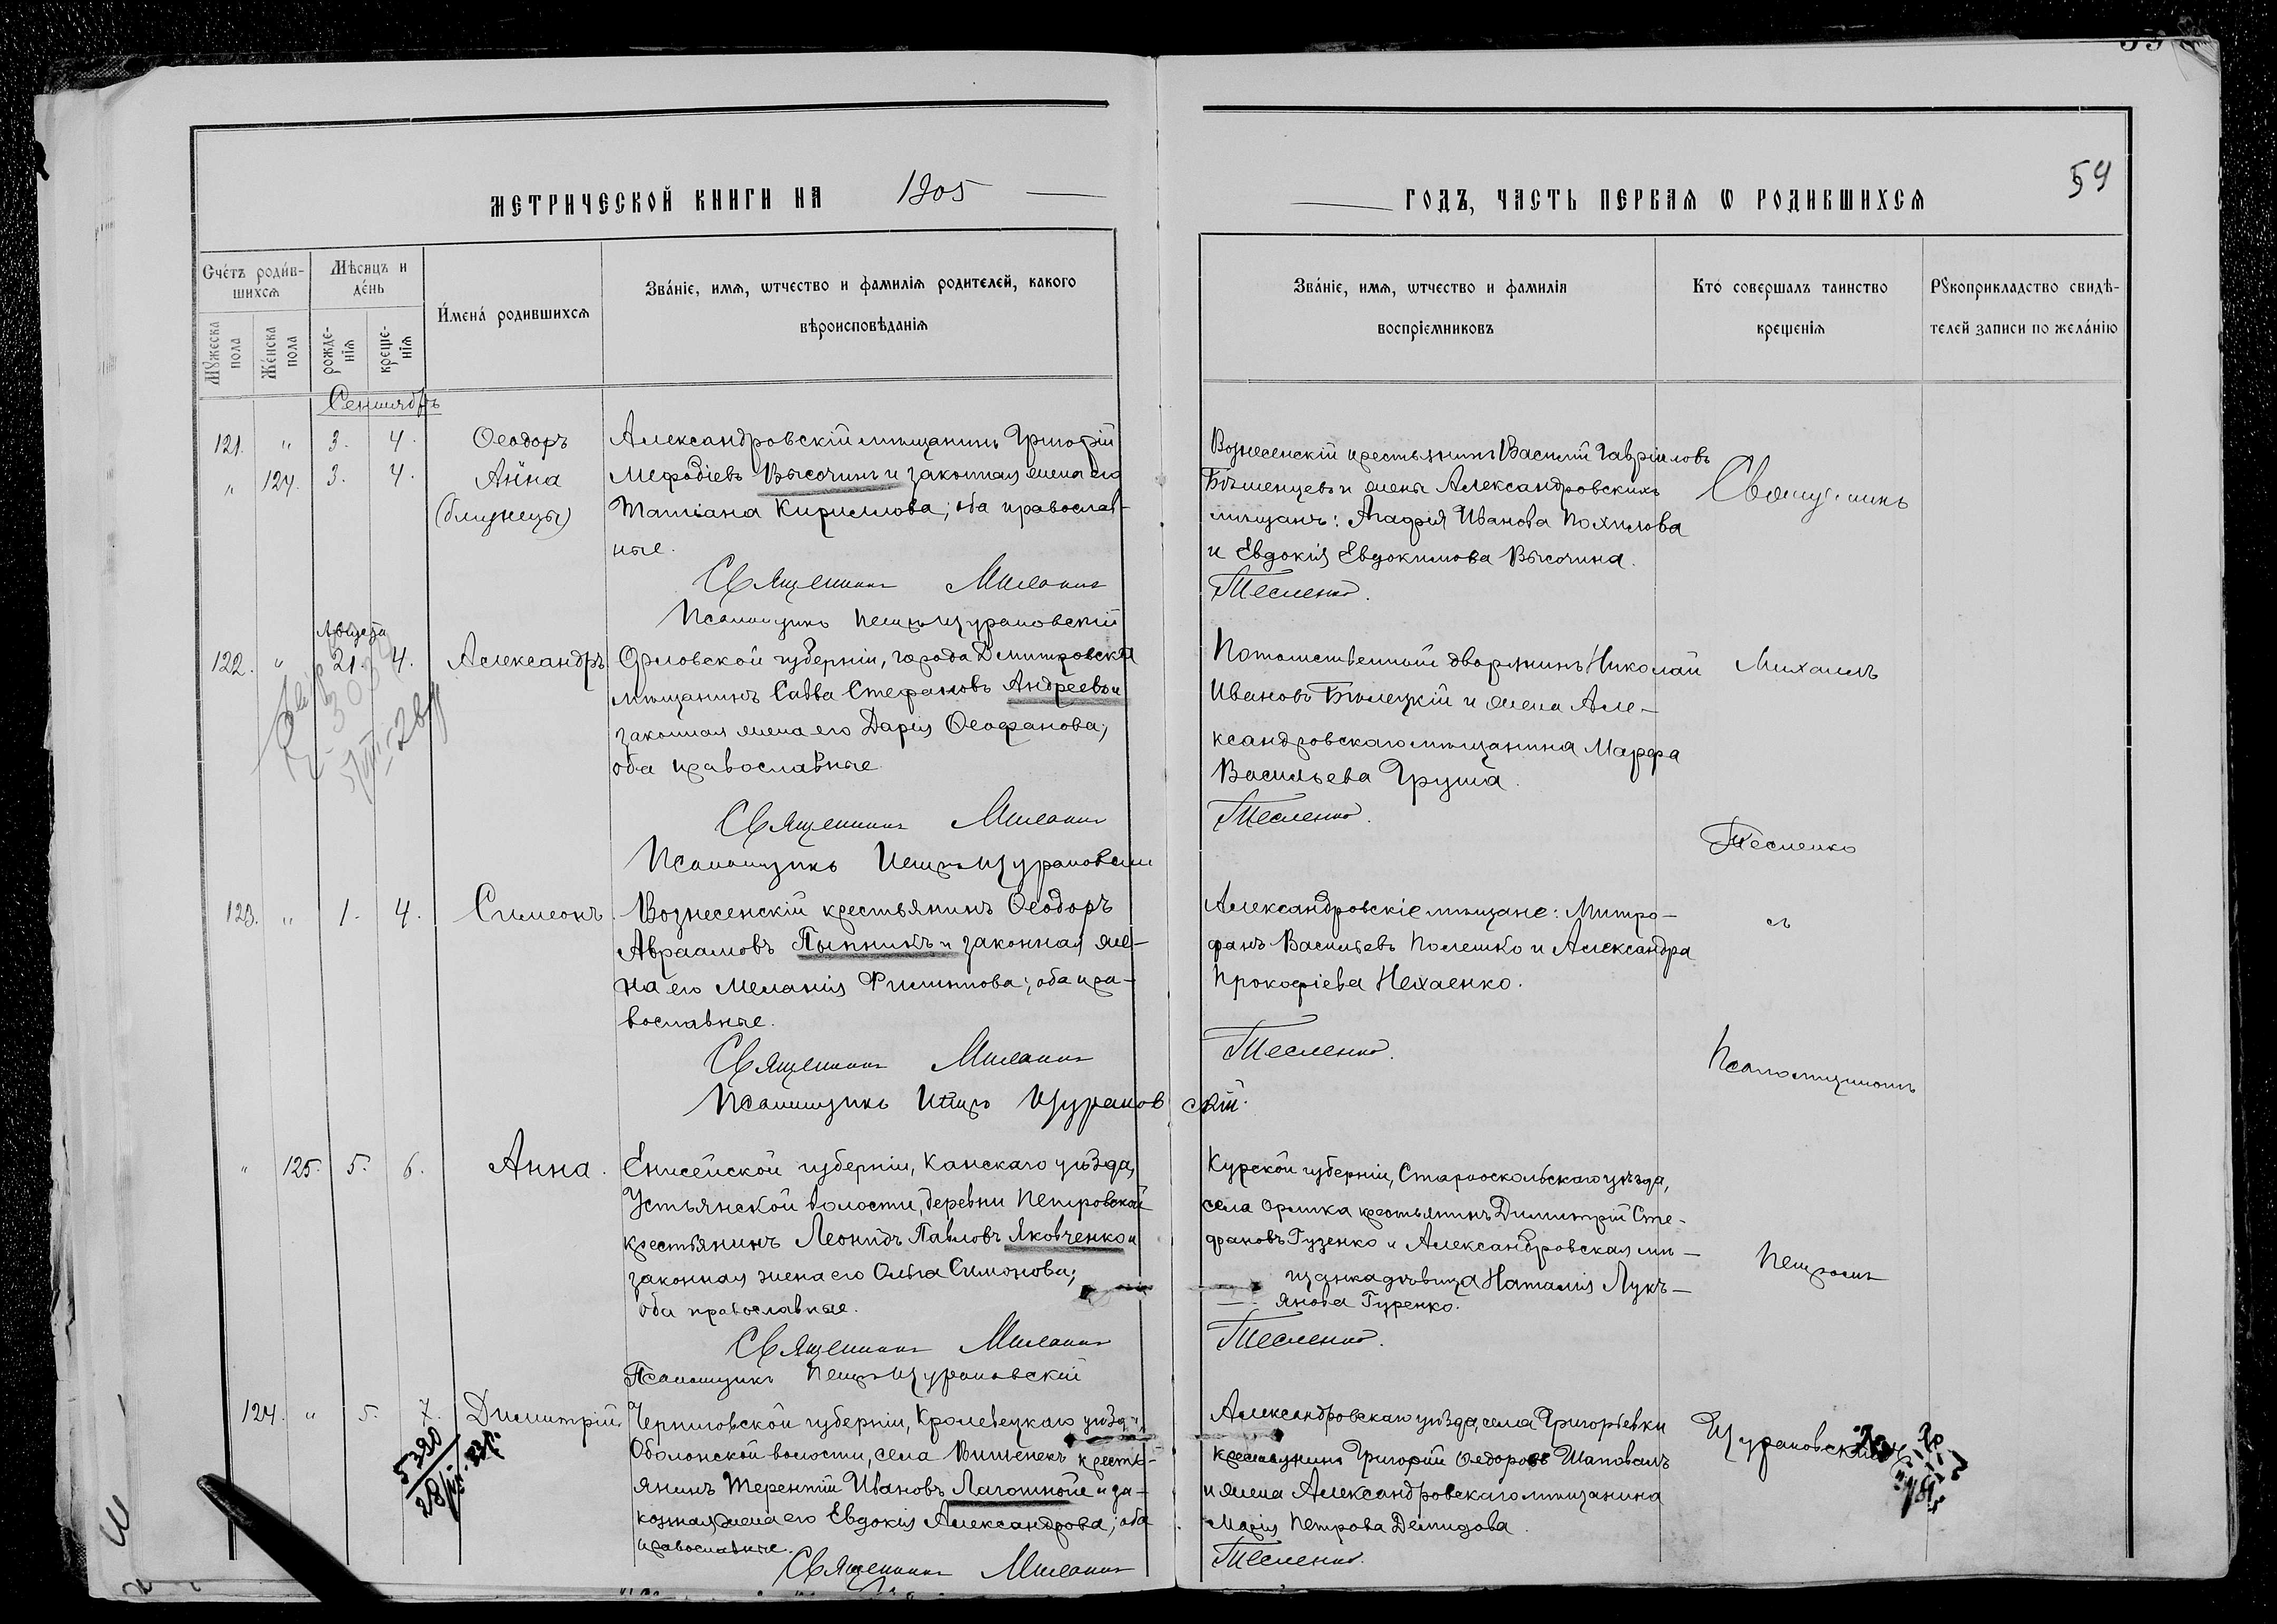 59
МЕТРИЧЕСКОЙ КНИГИ НА 1905
ГОДЪ, ЧАСТЬ ПЕРВАЯ Ѡ РОДИВШИХСЯ
Счетъ родив-
шихся
Мѣсяцъ и
день
Имена родившихся
Званіе, имя, ѡтчество и фамилія родителей, какого
вѣроисповѣданія
Званіе, имя, ѡтчество и фамилія
воспріемниковъ
Кто совершалъ таинство
крещенія
Рꙋкоприкладство свидѣ-
телей записи по желанію
Мꙋжеска
пола
Женска
пола
рожде-
нія
креще-
нія
Сентябрь
121. " 3. 4. Ѳеодоръ
" 124. 3. 4. Анна
(близнецы)
Александровскій мѣщанинъ Григорій
Меѳодіевъ Высочинъ и законная жена его
Татіана Кириллова; оба православ-
ные.
Священникъ
Псаломщикъ Петръ Щурановскій
Вознесенскій крестьянинъ Василій Гавріиловъ
и жены Александровскихъ
мѣщанъ: Агафія Иванова Похилова
и Евдокія Евдокимова Высочина.
Тесленко.
Священникъ
Августа
122. " 21. 4. Александръ
Орловской губерніи, города Дмитровска
мѣщанинъ Савва Стефановъ Андреевъ и
законная жена его Дарія Ѳеофанова;
оба православные
Священникъ
Псаломщикъ Петръ Щурановскій
Потомственный дворянинъ Николай
Ивановъ Бѣлецкій и жена Але-
ксандровскаго мѣщанина Марфа
Васильева Груша.
Тесленко.
Михаилъ
Тесленко
123. " 1. 4. Симеонъ.
Вознесенскій крестьянинъ Ѳеодоръ
Авраамовъ Пыпникъ и законная же-
на его Меланія Филиппова; оба пра-
вославные.
Священникъ
Псаломщикъ Петръ Щурановскій.
Александровскіе мѣщане: Митро-
фанъ Васильевъ Полешко и Александра
Прокофіева Нехаенко.
Тесленко.
съ
Псаломщикомъ
" 125. 5. 6. Анна.
Енисейской губерніи, Канскаго уѣзда,
Устьянской волости, деревни Петровской
крестьянинъ Леонидъ Павловъ Яковченко и
законная жена его Ольга Симонова;
оба православные.
Священникъ
Псаломщикъ Петръ Щурановскій
Курской губерніи, Старооскольскаго уѣзда,
села Орлика крестьянинъ Димитрій Сте-
фановъ Гузенко и Александровская мѣ-
щанка дѣвица Наталія Лукъ-
янова Гуренко.
Тесленко.
Петромъ
124. " 5. 7. Димитрій
Черниговской губерніи, Кролевецкаго уѣзда,
Оболонской волости, села Вишенекъ кресть-
янинъ Терентій Ивановъ и за-
конная жена его Евдокія Александрова; оба
православные.
Священникъ
Александровскаго уѣзда, села Григорьевки
крестьянинъ Григорій Ѳедоровъ Шаповалъ
и жена Александровскаго мѣщанина
Марія Петрова Демидова.
Тесленко.
Щурановскимъ
5390